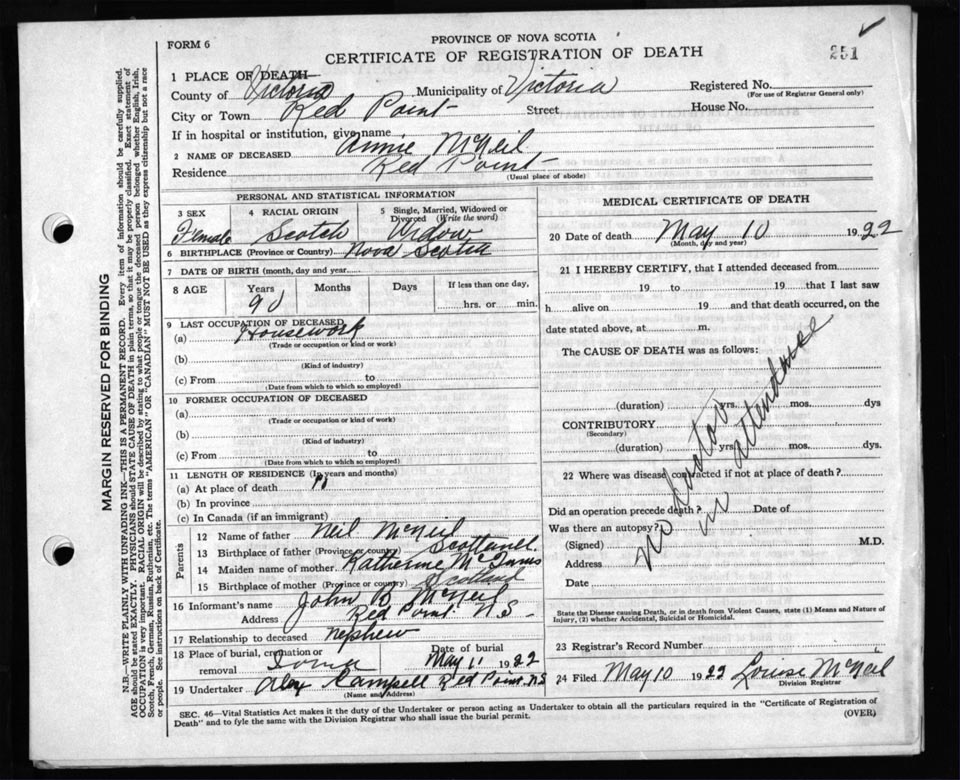 251
FORM 6
PROVINCE OF NOVA SCOTIA
CERTIFICATE OF REGISTRATION OF DEATH
1 PLACE OF DEATH—
County of Victoria Municipality of Victoria Registered No.
(For use of Registrar General only)
City or Town Red Point Street House No.
If in hospital or institution, give name
2 NAME OF DECEASED Annie McNeil
Residence Red Point
(Usual place of abode)
PERSONAL AND STATISTICAL INFORMATION
3 SEX 4 RACIAL ORIGIN 5 Single, Married, Widowed or
Divorced (Write the word)
Female Scotch Widow
6 BIRTHPLACE (Province or Country) Nova Scotia
7 DATE OF BIRTH (month, day and year)
8 AGE Years Months Days If less than one day,
90 hrs. or min.
9 LAST OCCUPATION OF DECEASED
(a) Housework
(Trade or occupation or kind or work)
(b)
(Kind of industry)
(c) From to
(Date from which to which so employed)
10 FORMER OCCUPATION OF DECEASED
(a)
(Trade or occupation or kind of work)
(b)
(Kind of industry)
(c) From to
(Date from which to which so employed)
11 LENGTH OF RESIDENCE (In years and months)
(a) At place of death
(b) In province
(c) In Canada (if an immigrant)
Parents
12 Name of father Neil McNeil
13 Birthplace of father (Province or country) Scotland
14 Maiden name of mother Katherine McInnis
15 Birthplace of mother (Province or country) Scotland
16 Informant's name John B McNeil
Address Red Point N.S
17 Relationship to deceased nephew
18 Place of burial, cremation or Date of burial
removal Iona May 11 1922
19 Undertaker Alex Campell Red Point N.S
(Name and Address)
MEDICAL CERTIFICATE OF DEATH
20 Date of death May 10 1922
(Month, day and year)
21 I HEREBY CERTIFY, that I attended deceased from
19 to 19 that I last saw
h alive on 19 and that death occurred, on the
date stated above, at m.
The CAUSE OF DEATH was as follows:
(duration) yrs. mos. dys
CONTRIBUTORY
(Secondary)
(duration) yrs. mos. dys.
22 Where was disease contracted if not at place of death?
Did an operation precede death? Date of
Was there an autopsy?
(Signed) M.D.
Address
Date
no doctor
in attendance
State the Disease causing Death, or in death from Violent Causes, state (1) Means and Nature of
Injury, (2) whether Accidental, Suicidal or Homicidal.
23 Registrar's Record Number
24 Filed May 10 1922 Louise McNeil
Division Registrar
SEC. 46—Vital Statistics Act makes it the duty of the Undertaker or person acting as Undertaker to obtain all the particulars required in the "Certificate of Registration of
Death" and to fyle the same with the Division Registrar who shall issue the burial permit. (OVER)
MARGIN RESERVED FOR BINDING
N.B.—WRITE PLAINLY WITH UNFADING INK—THIS IS A PERMANENT RECORD. Every item of information should be carefully supplied.
AGE should be stated EXACTLY. PHYSICIANS should STATE CAUSE OF DEATH in plain terms, so that it may be properly classified. Exact statement of
OCCUPATION is very important. RACIAL ORIGIN will be described by stating to what people or tongue the deceased person belonged whether English, Irish,
Scotch, French, German, Russian, Ruthenian, etc. The terms "AMERICAN" OR "CANADIAN" MUST NOT BE USED as they express citizenship but not a race
or people. See instructions on back of Certificate.